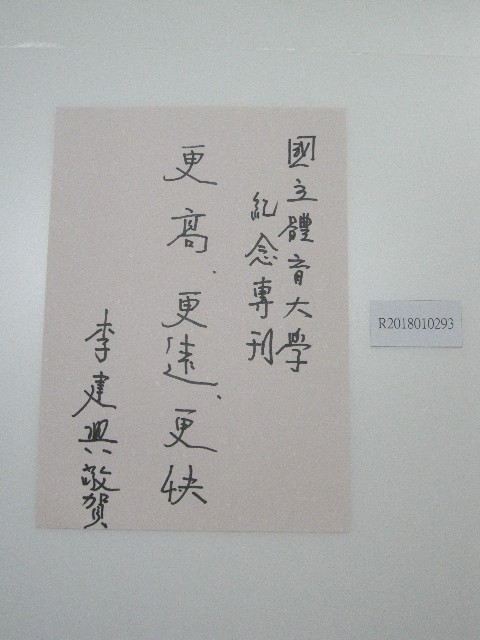 國立體育大學
紀念專刊
更高、更遠、更快
李建興敬賀
R2018010293